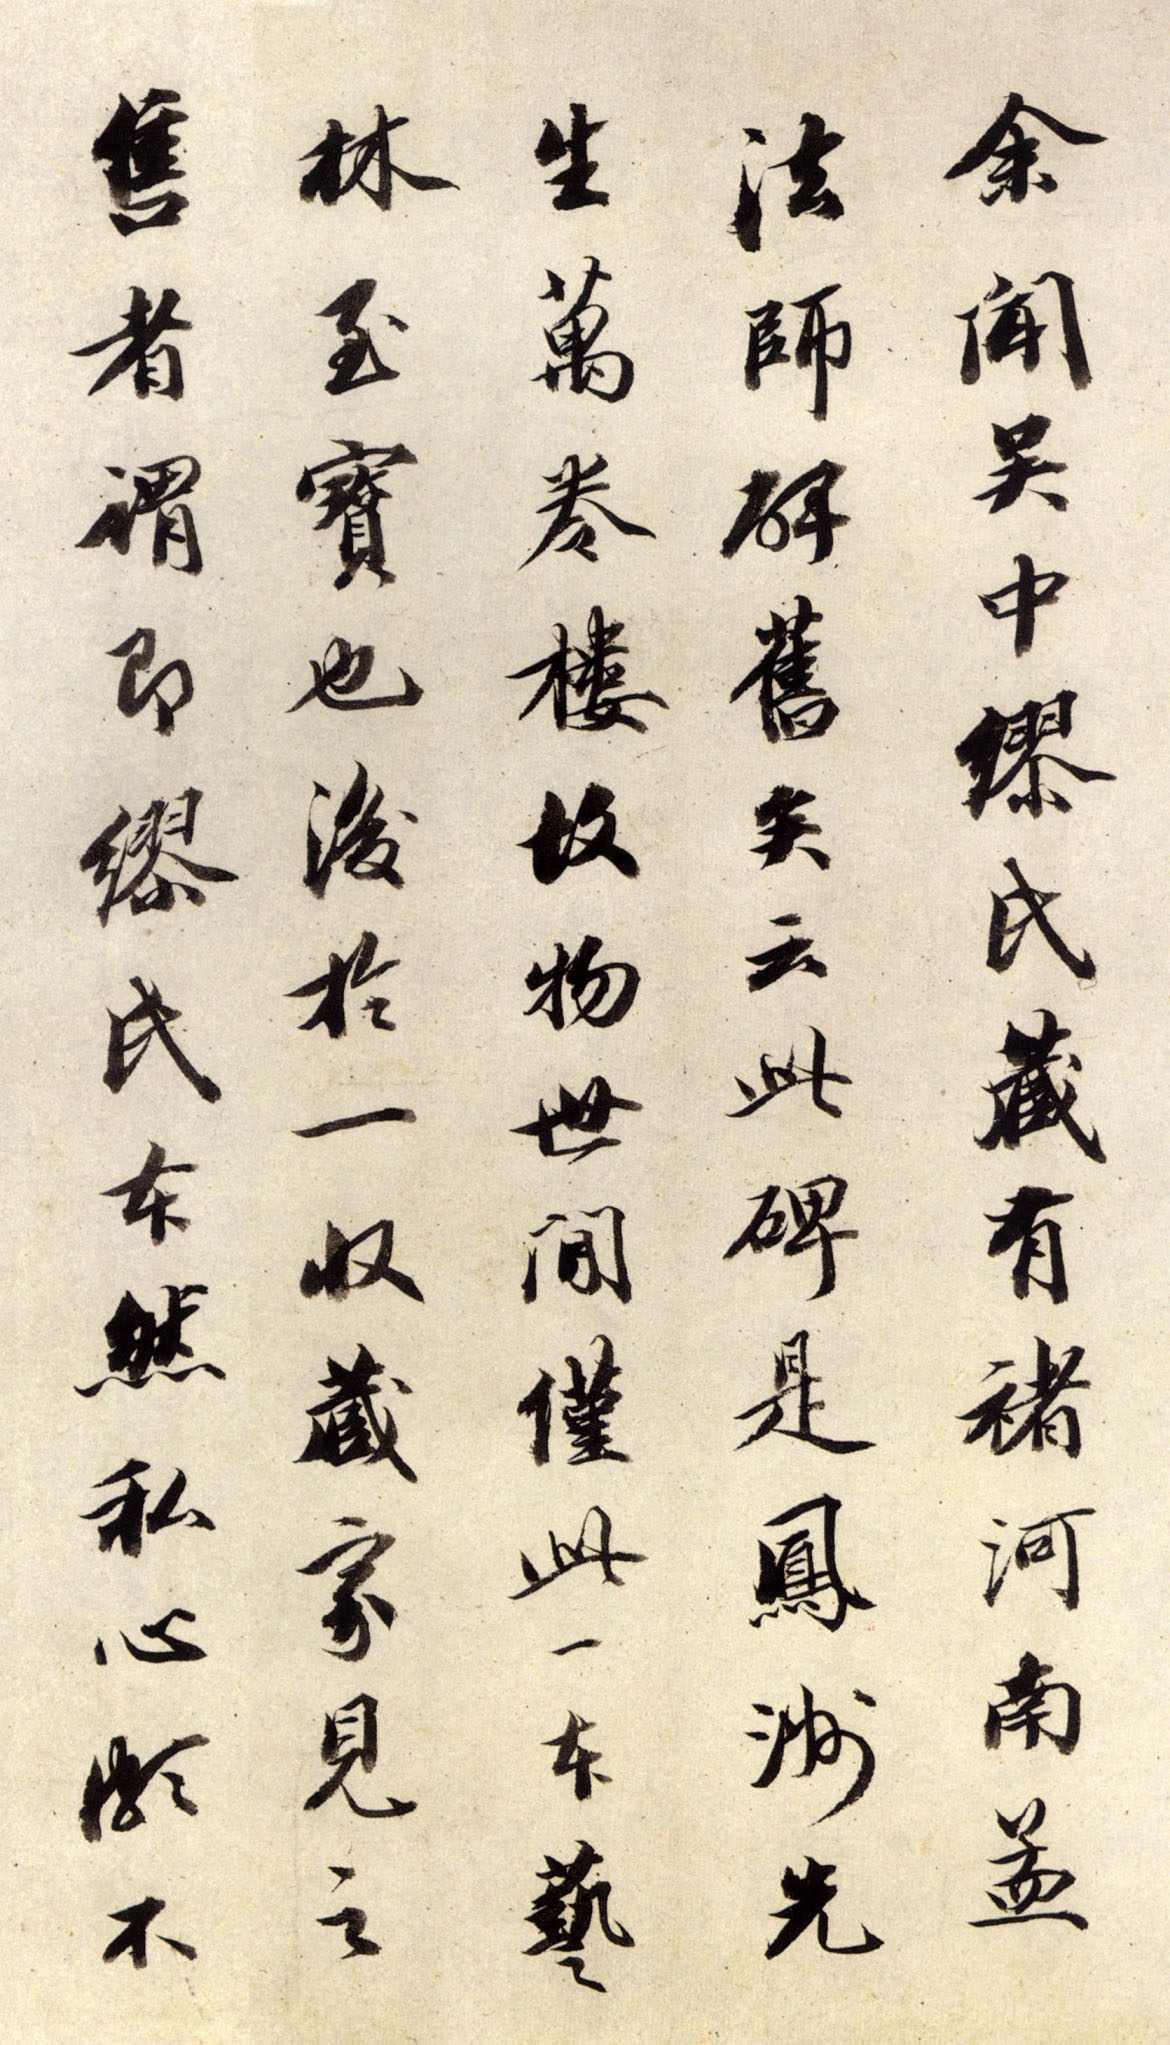 余闻吴中缪氏藏有褚河南孟
法師碑舊矣云此碑是鳳洲先
生萬卷樓故物世間僅此一本藝
林至寶也後於一收藏家見之
售者謂即缪氏本然私心頗不